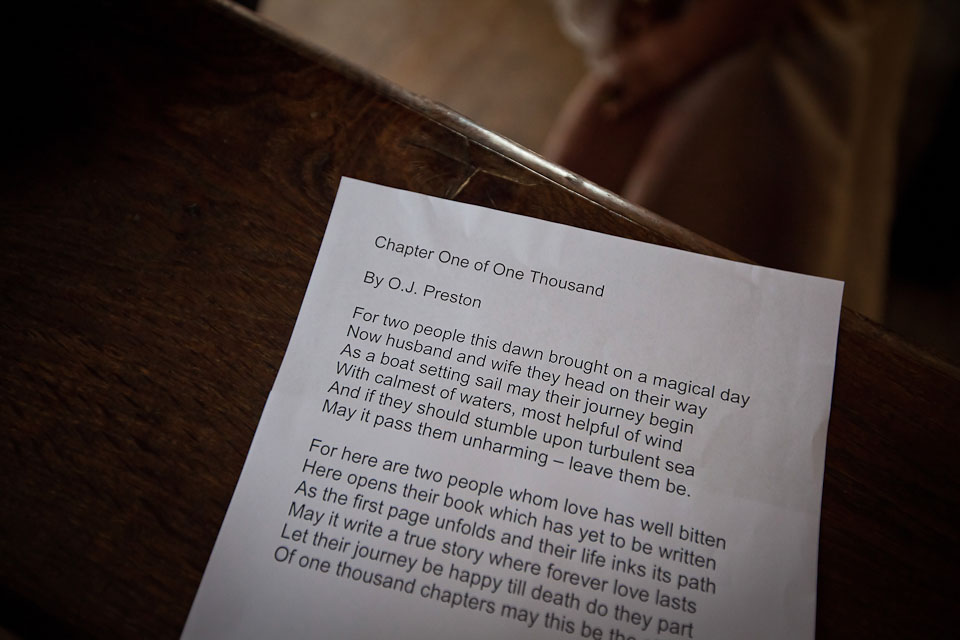 Chapter One of One Thousand
By O.J. Preston
For two people this dawn brought on a magical day
Now husband and wife they head on their way
As a boat setting sail may their journey begin
With calmest of waters, most helpful of wind
And if they should stumble upon turbulent sea
May it pass them unharming – leave them be.
For here are two people whom love has well bitten
Here opens their book which has yet to be written
As the first page unfolds and their life inks its path
May it write a true story where forever love lasts
Let their journey be happy till death do they part
Of one thousand chapters may this be the